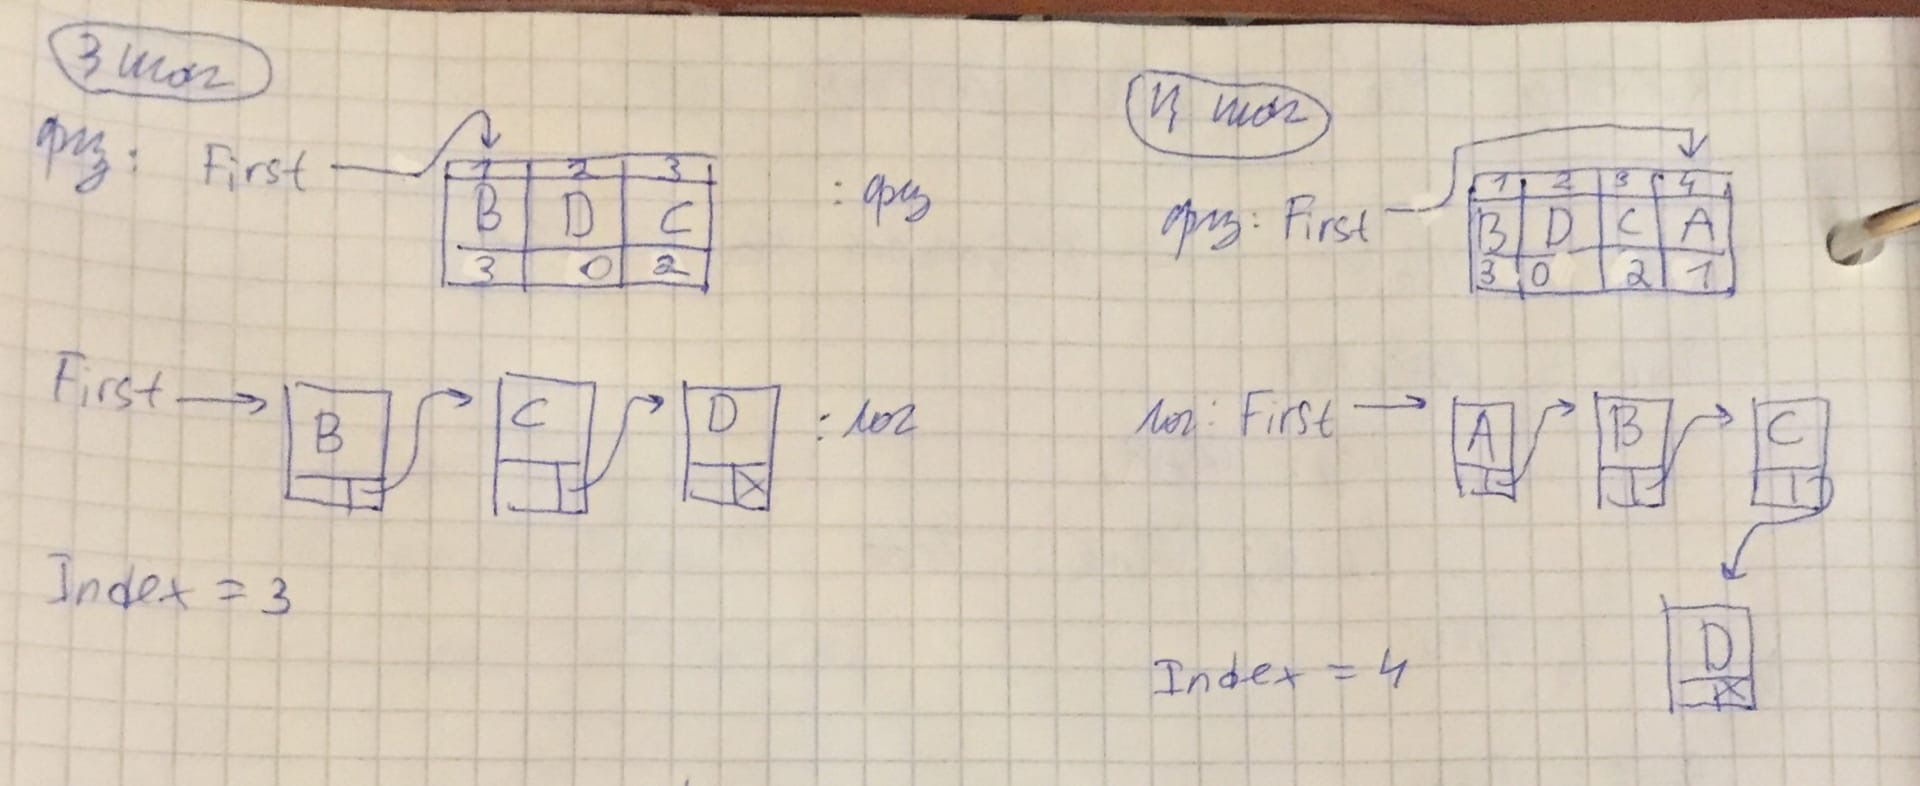 3 шаг
физ: First
1 2 3
B D C
3 0 2
: физ
First
B C D
: лог
Index = 3
4 шаг
физ: First
1 2 3 4
B D C A
3 0 2 1
лог: First
A B C
D
Index = 4